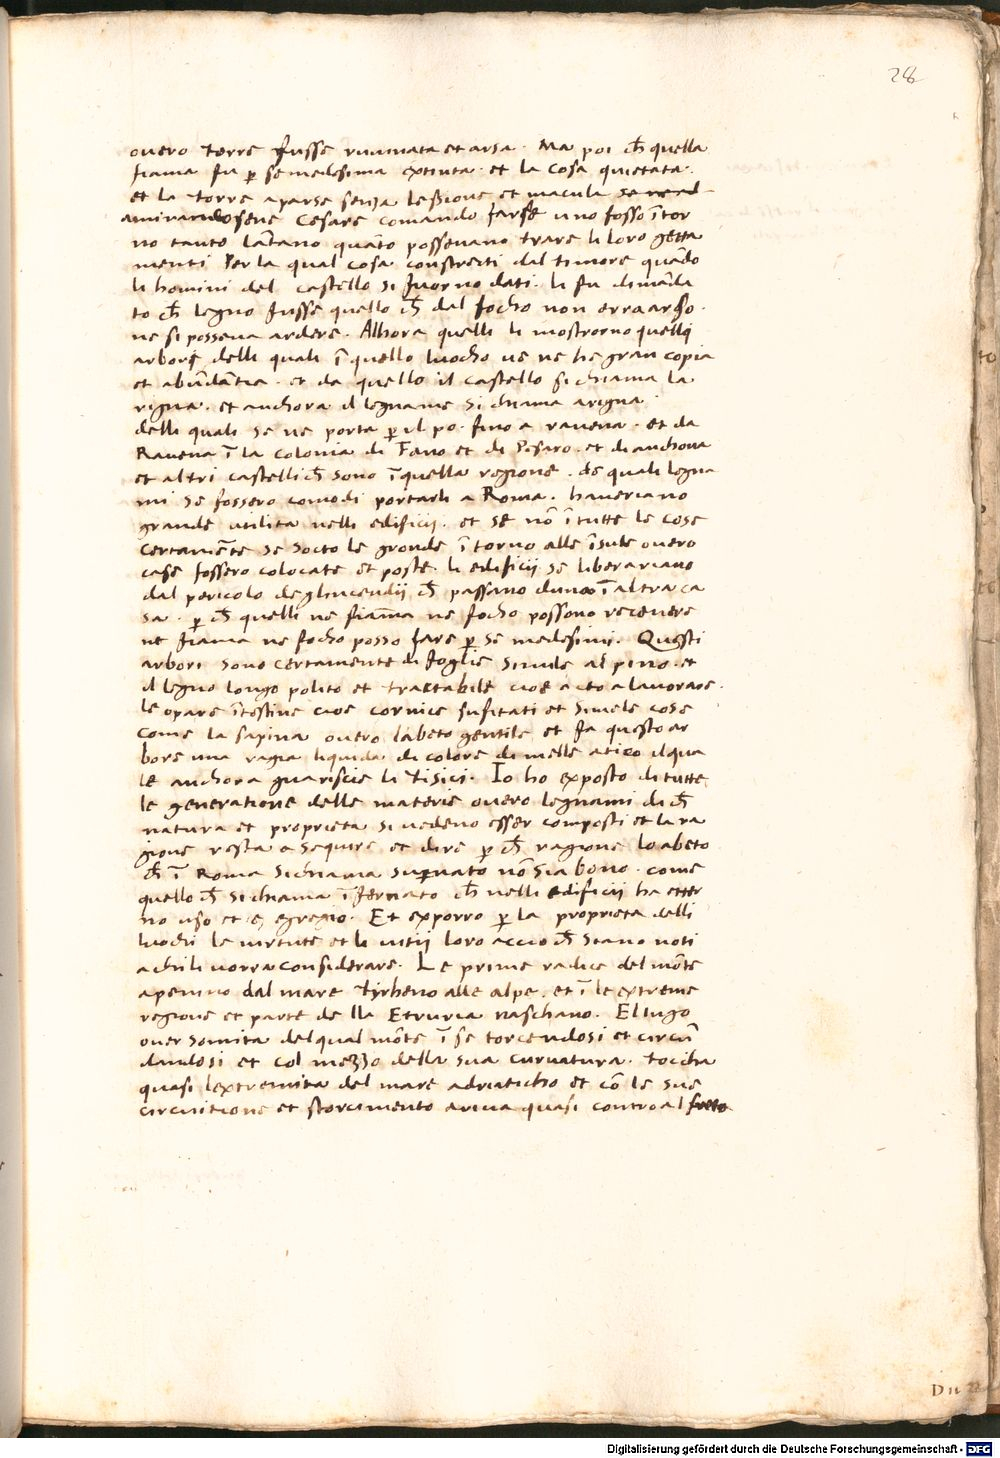 28
overo torre fusse ruuinata et arsa. Ma poi ch̄ quella
fiama fu ꝑ se medesima extinta. et la cosa quietata.
et la torre aparse senza lessione et macula
aminarādosene Cesare comando farse uno fosso ītor
no tanto lōtano quāto possevano trare li loro getta
menti Per la qual cosa constretti dal timore quādo
li homini del castello si furno dati. li fu dimāda
to ch̄ legno fusse quello ch̄ dal focho non era arso.
ne si posseva ardere. Alhora quelli li mostrorno quelli
arbori delli quali ī quello luocho ve ne he gran copia
et abūdātia. et da quello il castello si chiama la
rigna. et anchora il legname si chiama arigna.
delli quali se ne porta ꝑ il po. fino a ravena. et da
Ravena ī la colonia di Fano et di Pesaro. et di anchona
et altri castelli ch̄ sono ī quella regione. de quali legna
mi se fossero comodi portarli a Roma. haveriano
grande utilita nelli edificii. et se nō ī tutte le cose
certamēte se socto le gronde ī torno alle īsule overo
case fossero colocate et poste. li edificii se liberariano
dal pericolo de glincendii ch̄ passano duna ī altra ca
sa. ꝑ ch̄ quelli ne fiāma ne focho possono recevere
ne fiama ne focho posso fare ꝑ se medesimi. Questi
arbori sono certamente di foglie simile al pino. et
il legno longo polito et tractabile cioe acto a lavorare.
le opare ītestine cioe cornice sufitati et simele cose
come la sapina overo labeto gentile et fa questo ar
bore una ragia liquida di colore di melle atico il qua
le anchora guariscie li tisici. Io ho exposto di tutte
le generatione delle materie overo legnami di ch̄
natura et proprieta si vedeno esser composti et la ra
gione resta a sequire et dire ꝑ ch̄ ragione lo abeto
ch̄ ī Roma si chiama supernato nō sia bono. come
quello ch̄ si chiama īfernato ch̄ nelli edificii ha etter
no uso et e egregio. Et exporro ꝑ la proprieta delli
luochi le virtute et li vitii loro accio ch̄ siano noti
a chi li vorra considerare. Le prime radice del mōte
apenino dal mare Tyrheno alle alpe. et ī le extreme
regione et parte de lla Etruria naschano. El iugo
over somita del qual mōte ī se torcendosi et circū
dandosi et col mezzo della sua curvatura. toccha
quasi lextremita del mare adriaticho et cō le sue
circuitione et storcimento ariva quasi contro al freto
D ii
Digitalisierung gefördert durch die Deutsche Forschungsgemeinschaft - DFG